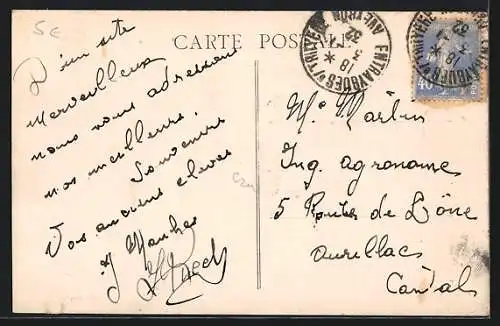 5€
CARTE POSTALE
D'un site
merveilleux
nous vous adressons
nos meilleurs
souvenirs
Vos anciens élèves
ENTRAYGUES S/TRUYERE
AVEYRON
18
3
40
Mr Martin
Ing. agronome
5 Route de
Aurillac
Cantal